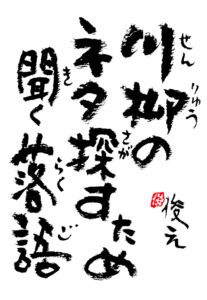 川柳の
せんりゅう
ネタ探すため
さが
聞く落語
き らくご
俊え